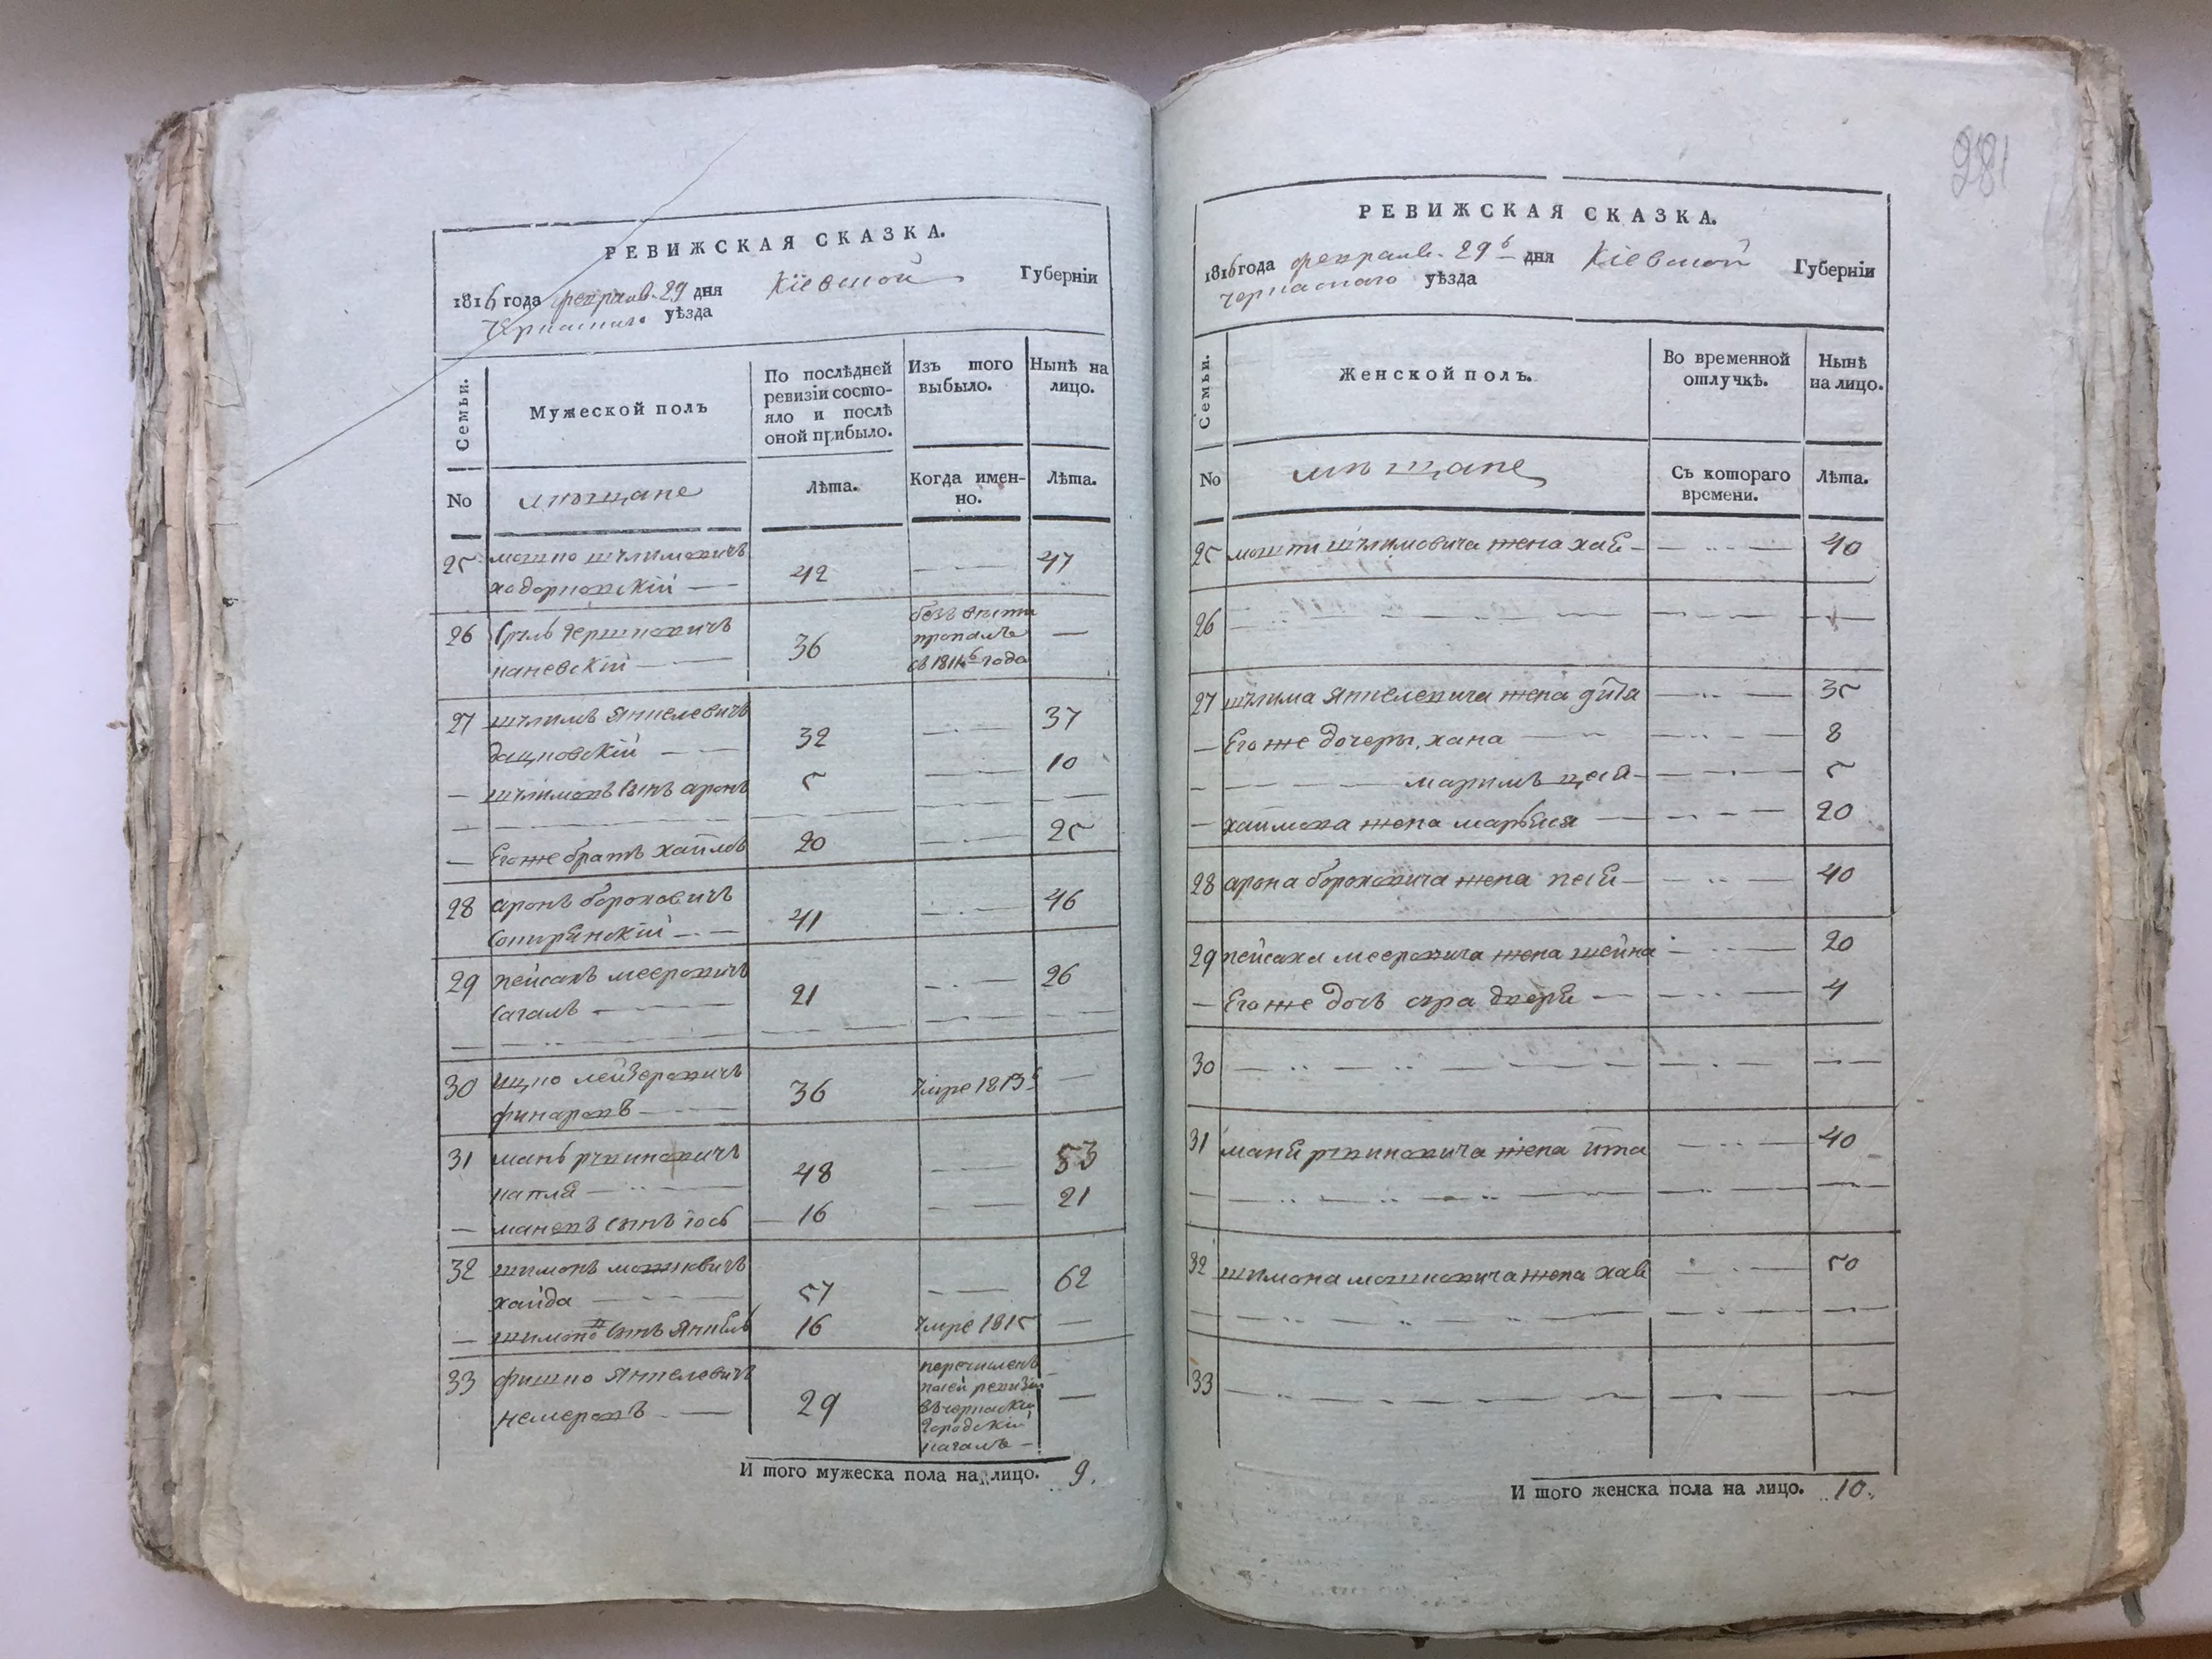 РЕВИЖСКАЯ СКАЗКА.
1816 года феврал. 29 дня Кіевской Губерніи
Черкаскаго уѣзда
Семьи.
Мужеской полъ
По послѣдней ревизіи состо-
яло и послѣ
оной прибыло.
Изъ того
выбыло.
Нынѣ на
лицо.
No
мѣщане
Лѣта.
Когда имен-
но.
Лѣта.
25 мошко шлимовичъ
ходорковскій — 42 — 47
26 Сруль гершковичъ
каневскій — 36 безъ вѣсти
пропалъ
съ 1814го года —
27 шлима Янкелевичъ
дацковскій — 32 — 37
— шлимовъ сынъ аронъ 5 — 10
— Его же братъ хаимъ 20 — 25
28 аронъ бороховичъ
41 — 46
29 пейсахъ мееровичъ
сагалъ — 21 — 26
30 ицко лейзеровичъ
36 умре 1813го —
31 мань рувиновичъ
капля — 48 — 53
— маневъ сынъ іось — 16 — 21
32 шимонъ мошковичъ
хайда — 57 — 62
— шимона сынъ Янкель 16 умре 1815 —
33 фишко Янкелевичъ
немеровъ — 29 перечисленъ
по сей ревизіи
въ черкаскій
городскій
кагалъ —
И того мужеска пола на лицо. 9.
281
РЕВИЖСКАЯ СКАЗКА.
1816 года феврал. 29го дня Кіевской Губерніи
Черкаскаго уѣзда
Семьи.
Женской полъ.
Во временной
отлучкѣ.
Нынѣ
на лицо.
No
мѣщане
Съ котораго
времени.
Лѣта.
25 мошки шлимовича жена хая — 40
26 —
27 шлима Янкелевича жена 35
— Его же дочеры, хана — 8
— маримъ — 5
— хаимова жена марьяся — 20
28 арона бороховича жена песя — 40
29 пейсаха мееровича жена шейна — 20
— Его же дочь сура двери — 4
30 —
31 маня рувиновича жена ита — 40
32 шимона мошковича жена хая 50
33 —
И того женска пола на лицо. 10.